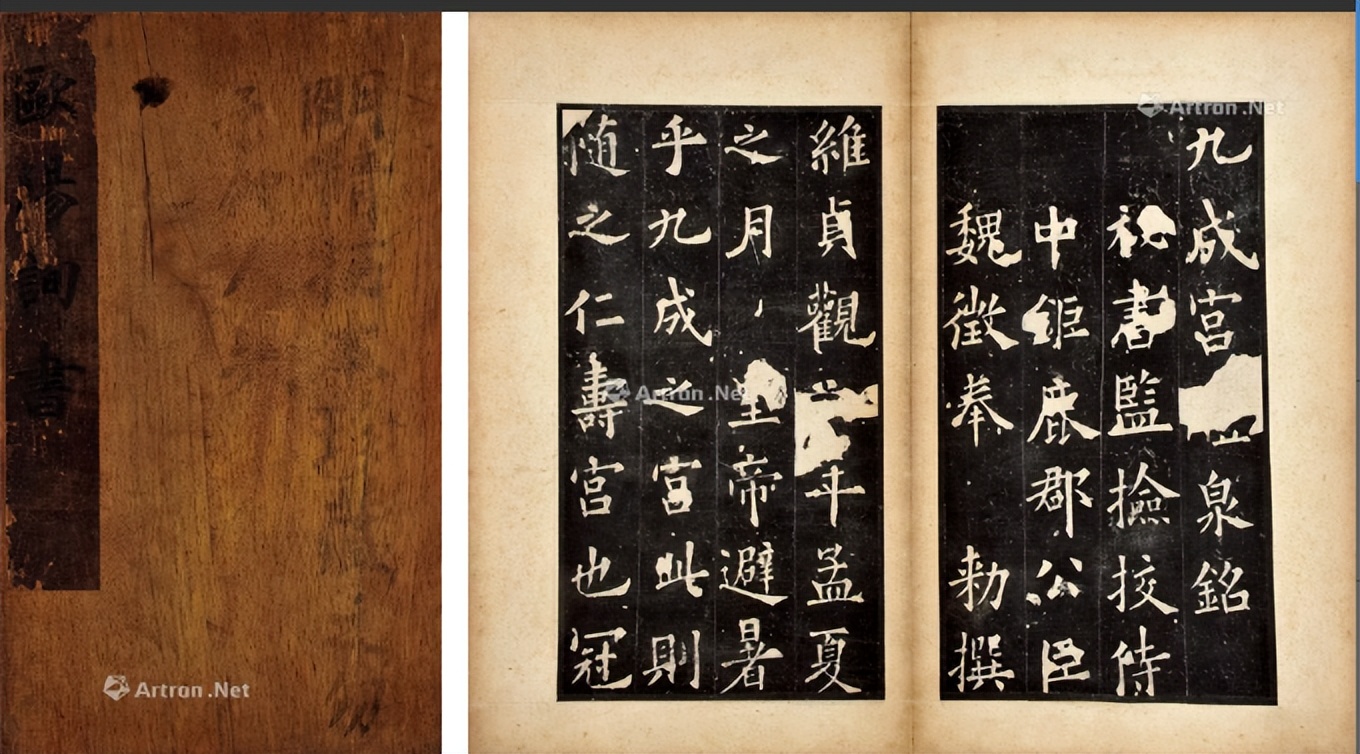 歐陽詢書
九成宮泉銘
祕書監撿挍侍
中鉅鹿郡公臣
魏徵奉 勅撰
維貞觀年孟夏
之月 皇帝避暑
乎九成之宮此則
随之仁壽宮也冠
Artron.Net
Artron.Net
Artron.Net